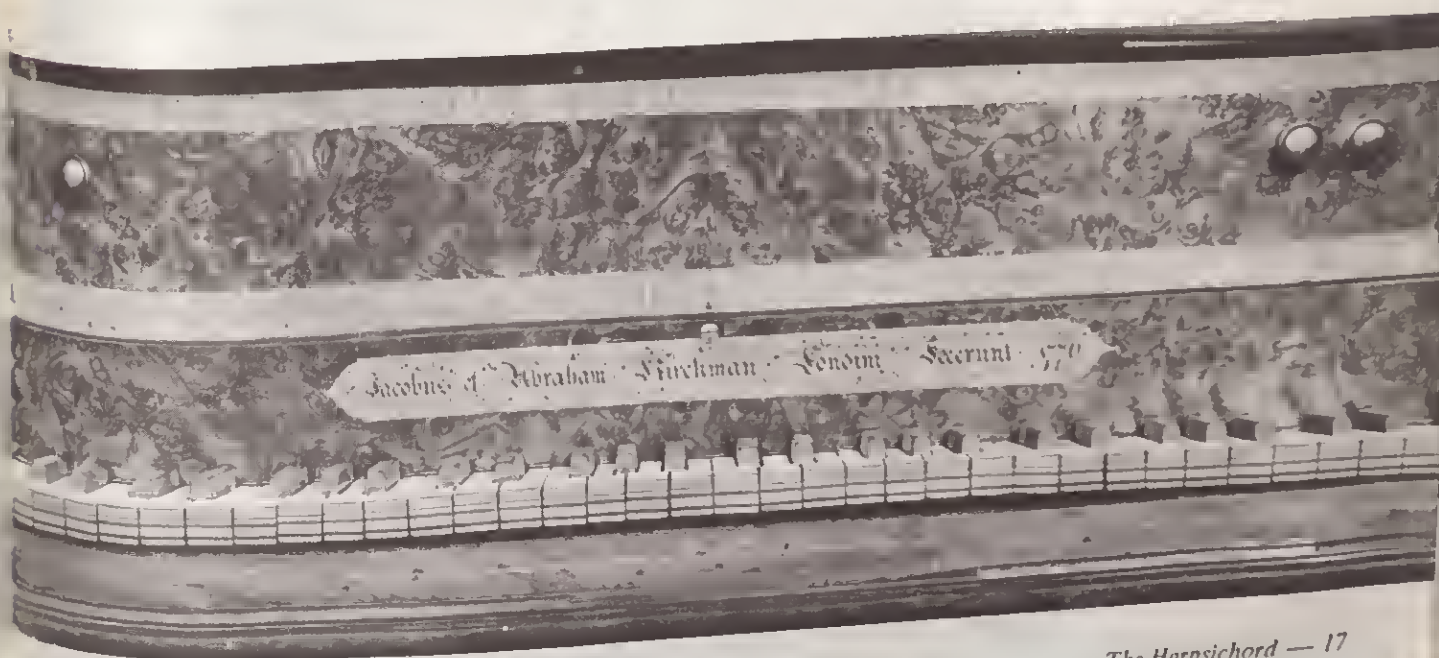 Jacobus et Abraham Kirckman Londini Fecerunt
The Harpsichord — 17